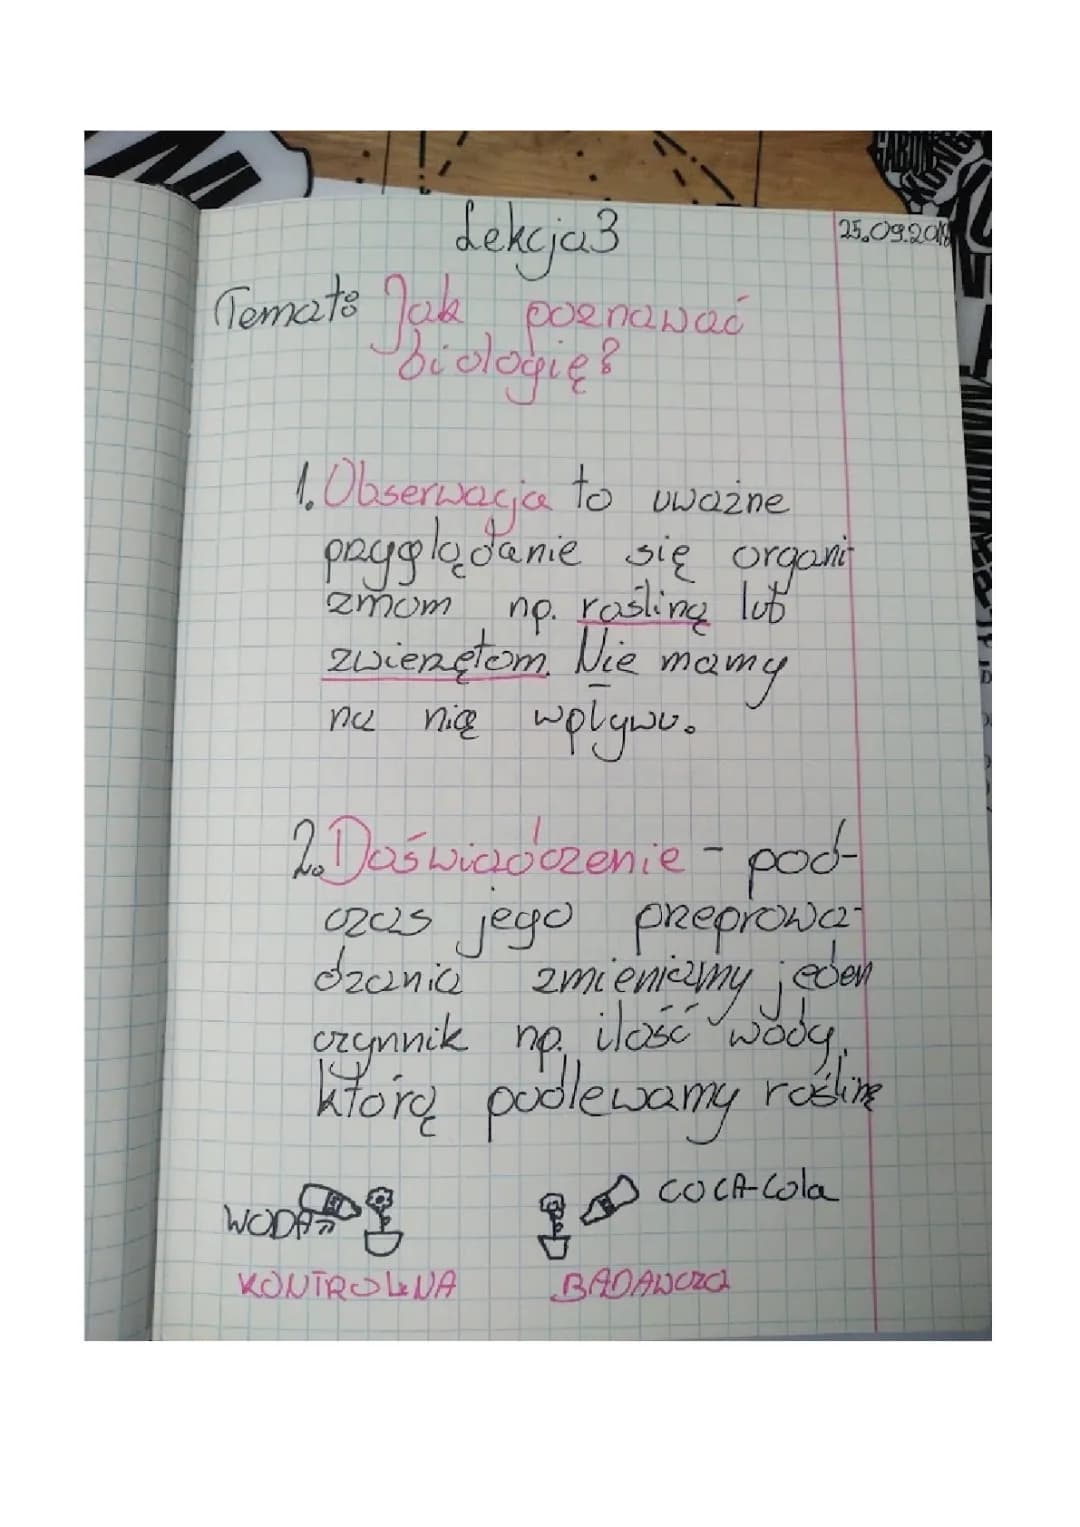 Lekcja 3
25.09.2018
Temat: Jak poznawać
biologię?
1. Obserwacja to uważne
przyglądanie się organi
zmom np. rośliną lub
zwierzętom. Nie mamy
na nią wpływu.
2. Doświadczenie - pod-
czas jego przeprowa-
dzania zmieniamy jeden
czynnik np. ilość wody,
którą podlewamy roślinę
WODA
COCA-Cola
KONTROLNA
BADAWCZA